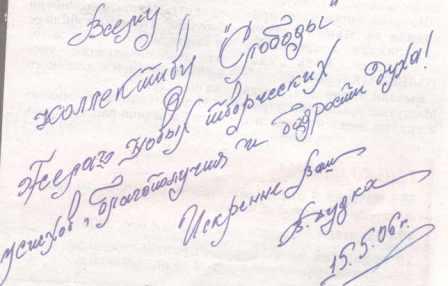 Всему
коллективу "Слободы"
Желаю новых творческих
успехов, благополучия и бодрости духа!
Искренне Ваш
В. Дудка
15.5.06г.